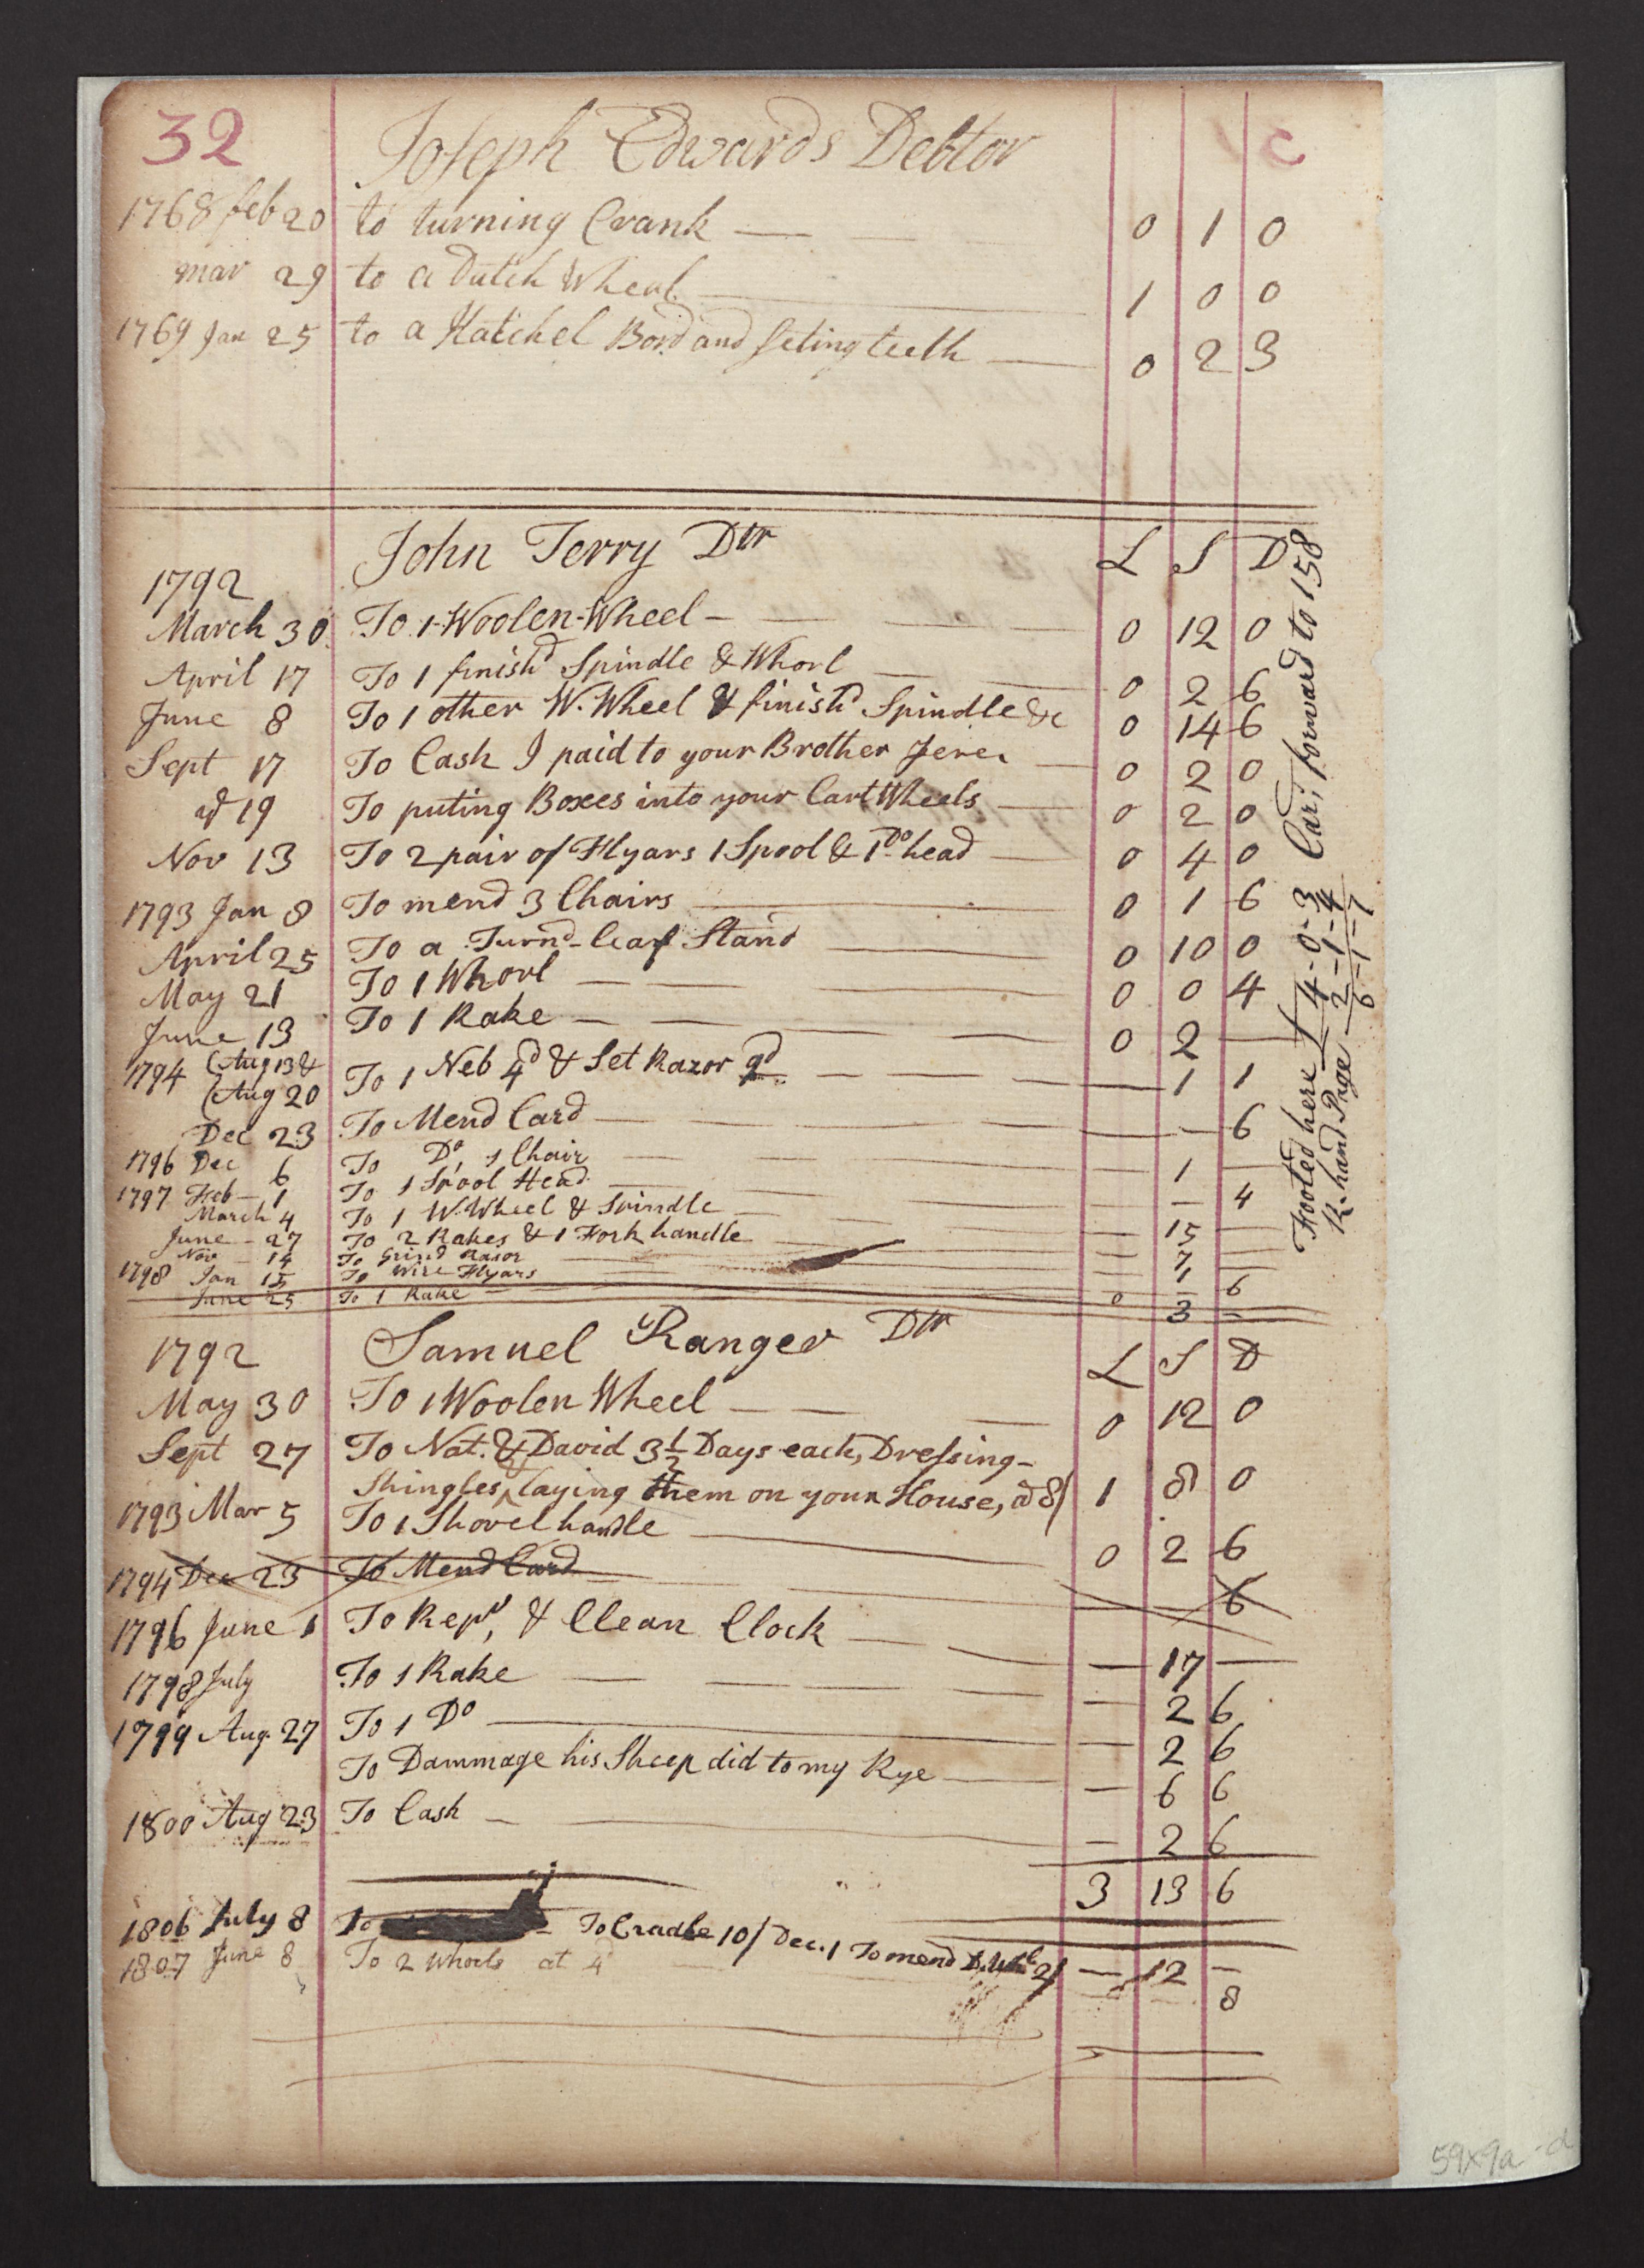 32 Joseph Edwards Debtor C
1768 feb 20 to turning Crank 0 1 0
mar 29 to a Dutch Wheal 1 0 0
1769 Jan 25 to a Hatchel Bord and seting teeth 0 2 3
1792 John Terry Dtr L S D
March 30 To 1 Woolen-Wheel 0 12 0
April 17 To 1 finishd Spindle & Whorl 0 2 6
June 8 To 1 other W. Wheel & finishd Spindle &c 0 14 6
Sept 17 To Cash I paid to your Brother Jere 0 2 0
19 To puting Boxes into your Cart Wheels 0 2 0
Nov 13 To 2 pair of Flyars 1 Spool & 1 Do head 0 4 0
1793 Jan 8 To mend 3 Chairs 0 1 6
April 25 To a Turnd-leaf Stand 0 10 0
May 21 To 1 Whorl 0 0 4
June 13 To 1 Rake 0 2 —
1794 (Aug 13 &
(Aug 20 To 1 Neb 4d & Set Razor 9d — 1 1
Dec 23 To Mend Card — — 6
1796 Dec 6 To Do 1 Chair — 1 —
1797 Feb 1 To 1 Spool Head — — 4
March 4 To 1 W. Wheel & Spindle — 15 —
June 27 To 2 Rakes & 1 Fork handle — 7 —
Nov 14 To Grind Razor
1798 Jan 15 To Wire Flyars — 1 6
June 25 To 1 Rake 0 3 —
Footed here 4-0-3 Car, forward to 158
R. hand Page 2-1-4
6-1-7
1792 Samuel Ranger Dtr L S D
May 30 To 1 Woolen Wheel 0 12 0
Sept 27 To Nat. & David 3½ Days each, Dressing
Shingles & laying them on your House, @ 8/ 1 8 0
1793 Mar 5 To 1 Shovel handle 0 2 6
1794 Dec 23 To Mend Card 6
1796 June 1 To Repr, & Clean Clock — 17 —
1798 July To 1 Rake — 2 6
1799 Aug. 27 To 1 Do — 2 6
To Dammage his Sheep did to my Rye — 6 6
1800 Aug 23 To Cash — 2 6
3 13 6
1806 July 8 To To Cradle 10/ Dec. 1 To mend D. Whl 2/ — 12 —
1807 June 8 To 2 Whorls at 4 8
59x9a-d